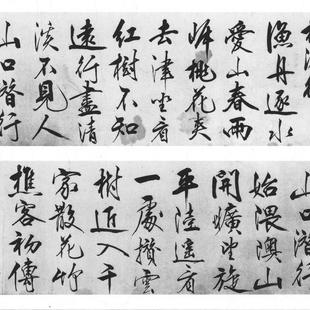 漁舟逐水
愛山春兩
岸桃花夾
去津坐看
紅樹不知
遠行盡清
溪不見人
山口潛行
山口潛行
始隈隩山
開曠望旋
平陸遙看
一處攢雲
樹近入千
家散花竹
樵客初傳